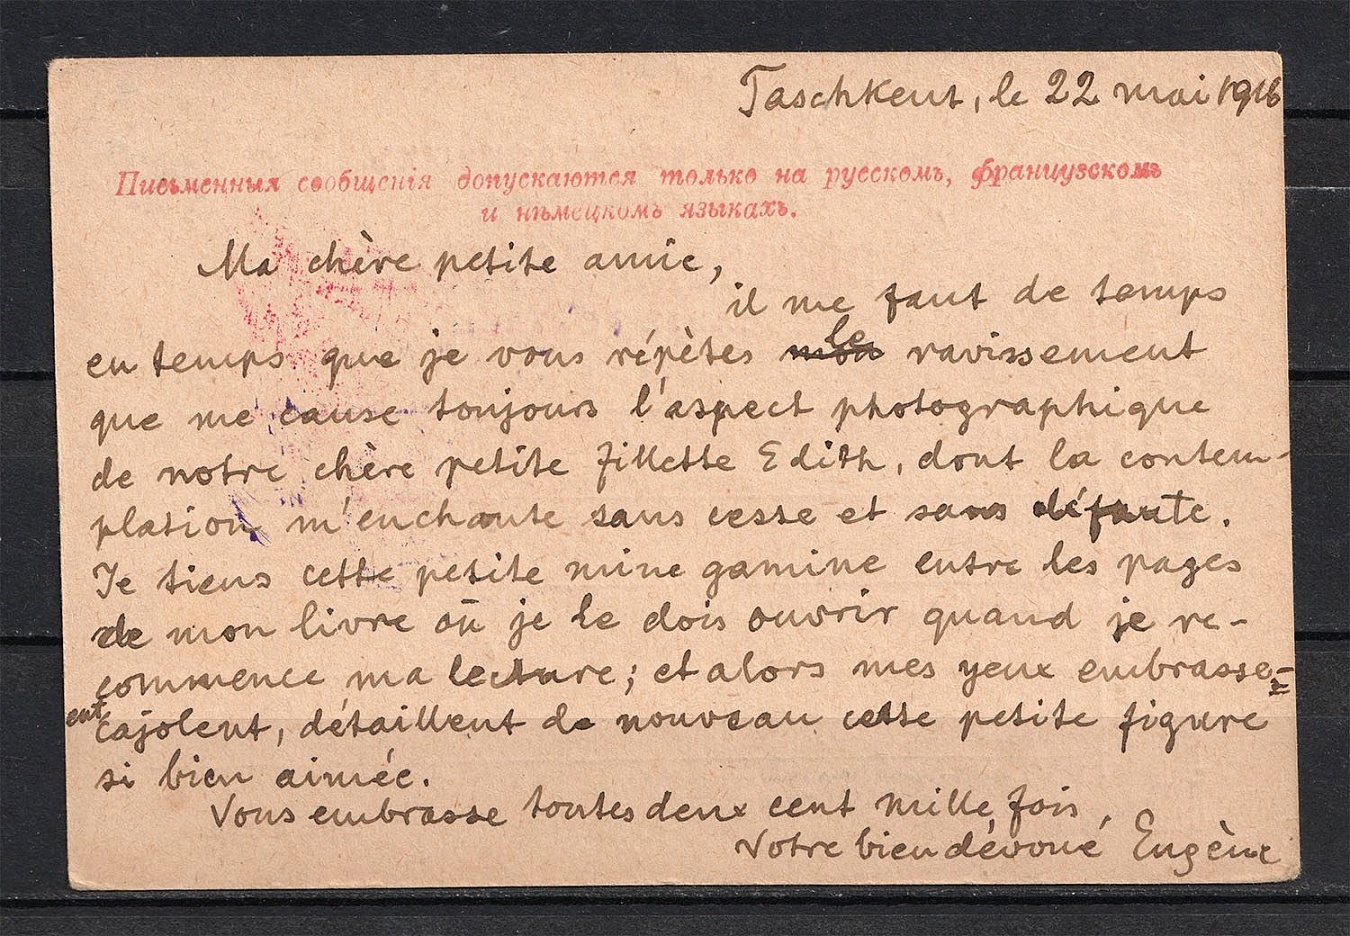 Taschkent, le 22 mai 1916
Письменныя сообщенія допускаются только на русскомъ, французскомъ
и нѣмецкомъ языкахъ.
Ma chère petite amie,
il me faut de temps
en temps que je vous répètes le ravissement
que me cause toujours l'aspect photographique
de notre chère petite fillette Edith, dont la contem-
plation m'enchante sans cesse et sans défaute.
Je tiens cette petite mine gamine entre les pages
de mon livre où je le dois ouvrir quand je re-
commence ma lecture; et alors mes yeux embrasse=
ent
cajolent, détaillent de nouveau cette petite figure
si bien aimée.
Vous embrasse toutes deux cent mille fois,
Votre bien dévoué Eugène